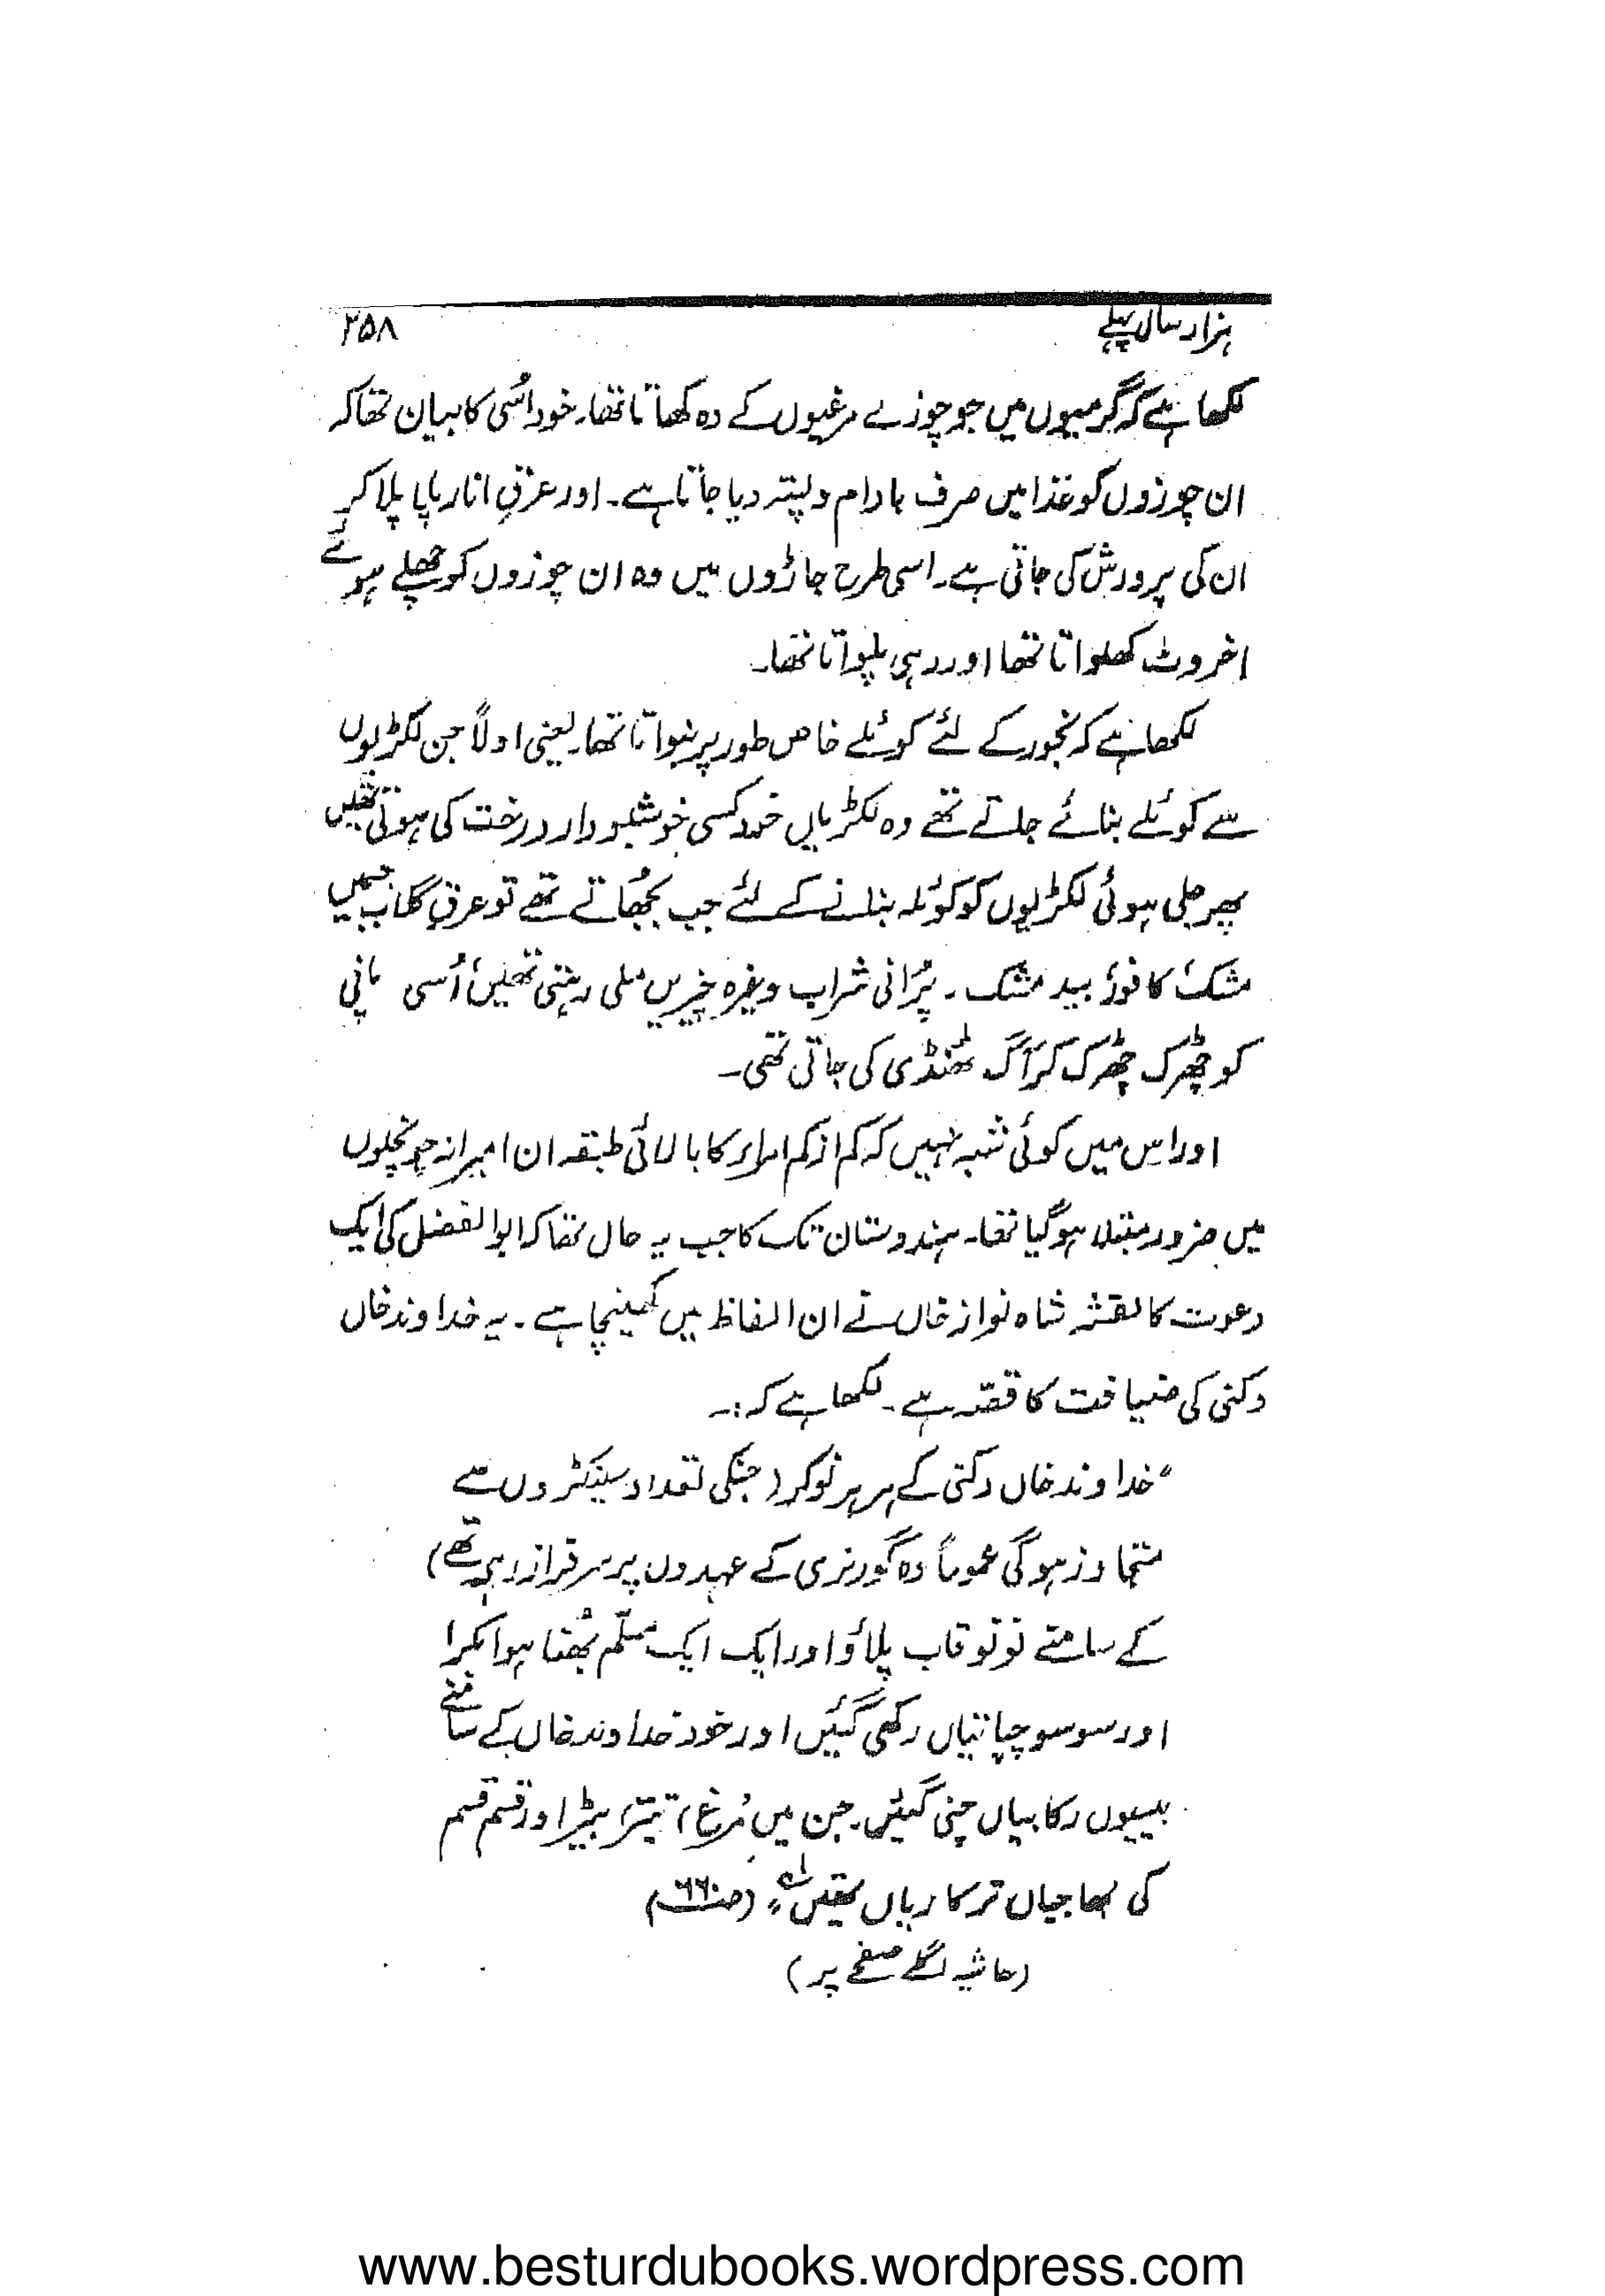 ہزار سال پہلے
۲۵۸
لکھا ہے کہ گرمیوں میں جو چوزے مرغیوں کے وہ کھاتا تھا۔ خود اُسی کا بیان تھا کہ
ان چوزوں کو غذا میں صرف بادام و پستہ دیا جاتا ہے۔ اور عرقِ انار پلا پلا کر
ان کی پرورش کی جاتی ہے۔ اسی طرح جاڑوں میں وہ ان چوزوں کو چھلے ہوئے
اخروٹ کھلواتا تھا اور دہی پلواتا تھا۔
لکھا ہے کہ بخور کے لئے کوئلے خاص طور پر بنواتا تھا۔ یعنی اولاً جن لکڑیوں
سے کوئلے بنائے جاتے تھے وہ لکڑیاں خود کسی خوشبودار درخت کی ہوتی تھیں
پھر جلی ہوئی لکڑیوں کو کوئلہ بنانے کے لئے جب بجھاتے تھے تو عرقِ گلاب جسمیں
مشک، کافور، بید مشک ۔ پُرانی شراب وغیرہ چیزیں ملی رہتی تھیں، اُسی پانی
کو چھڑک چھڑک کر آگ ٹھنڈی کی جاتی تھی۔
اور اس میں کوئی شبہ نہیں کہ کم از کم امراء کا بالائی طبقہ ان امیرانہ چونچلوں
میں ضرور مبتلا ہو گیا تھا۔ ہندوستان تک کا جب یہ حال تھا کہ ابوالفضل کی ایک
دعوت کا نقشہ شاہ نواز خاں نے ان الفاظ میں کھینچا ہے ۔ یہ خداوند خاں
دکنی کی ضیافت کا قصّہ ہے ۔ لکھا ہے کہ :۔
“خداوند خاں دکنی کے ہر ہر نوکر (جنکی تعداد سینکڑوں سے
متجاوز ہو گی عموماً وہ گورنری کے عہدوں پر سرفراز رہے تھے)
کے سامنے نو نو قاب پلاؤ اور ایک ایک مسلّم بُھنا ہوا بکرا
اور سو سو چپاتیاں رکھی گئیں اور خود خداوند خاں کے سامنے
بیسیوں رکابیاں چنی گئیں۔ جن میں مُرغ، تیتر، بٹیر اور قسم قسم
کی بھاجیاں ترکاریاں تھیں” لہ (ص ۶۶۰)
(حاشیہ اگلے صفحے پر)
www.besturdubooks.wordpress.com